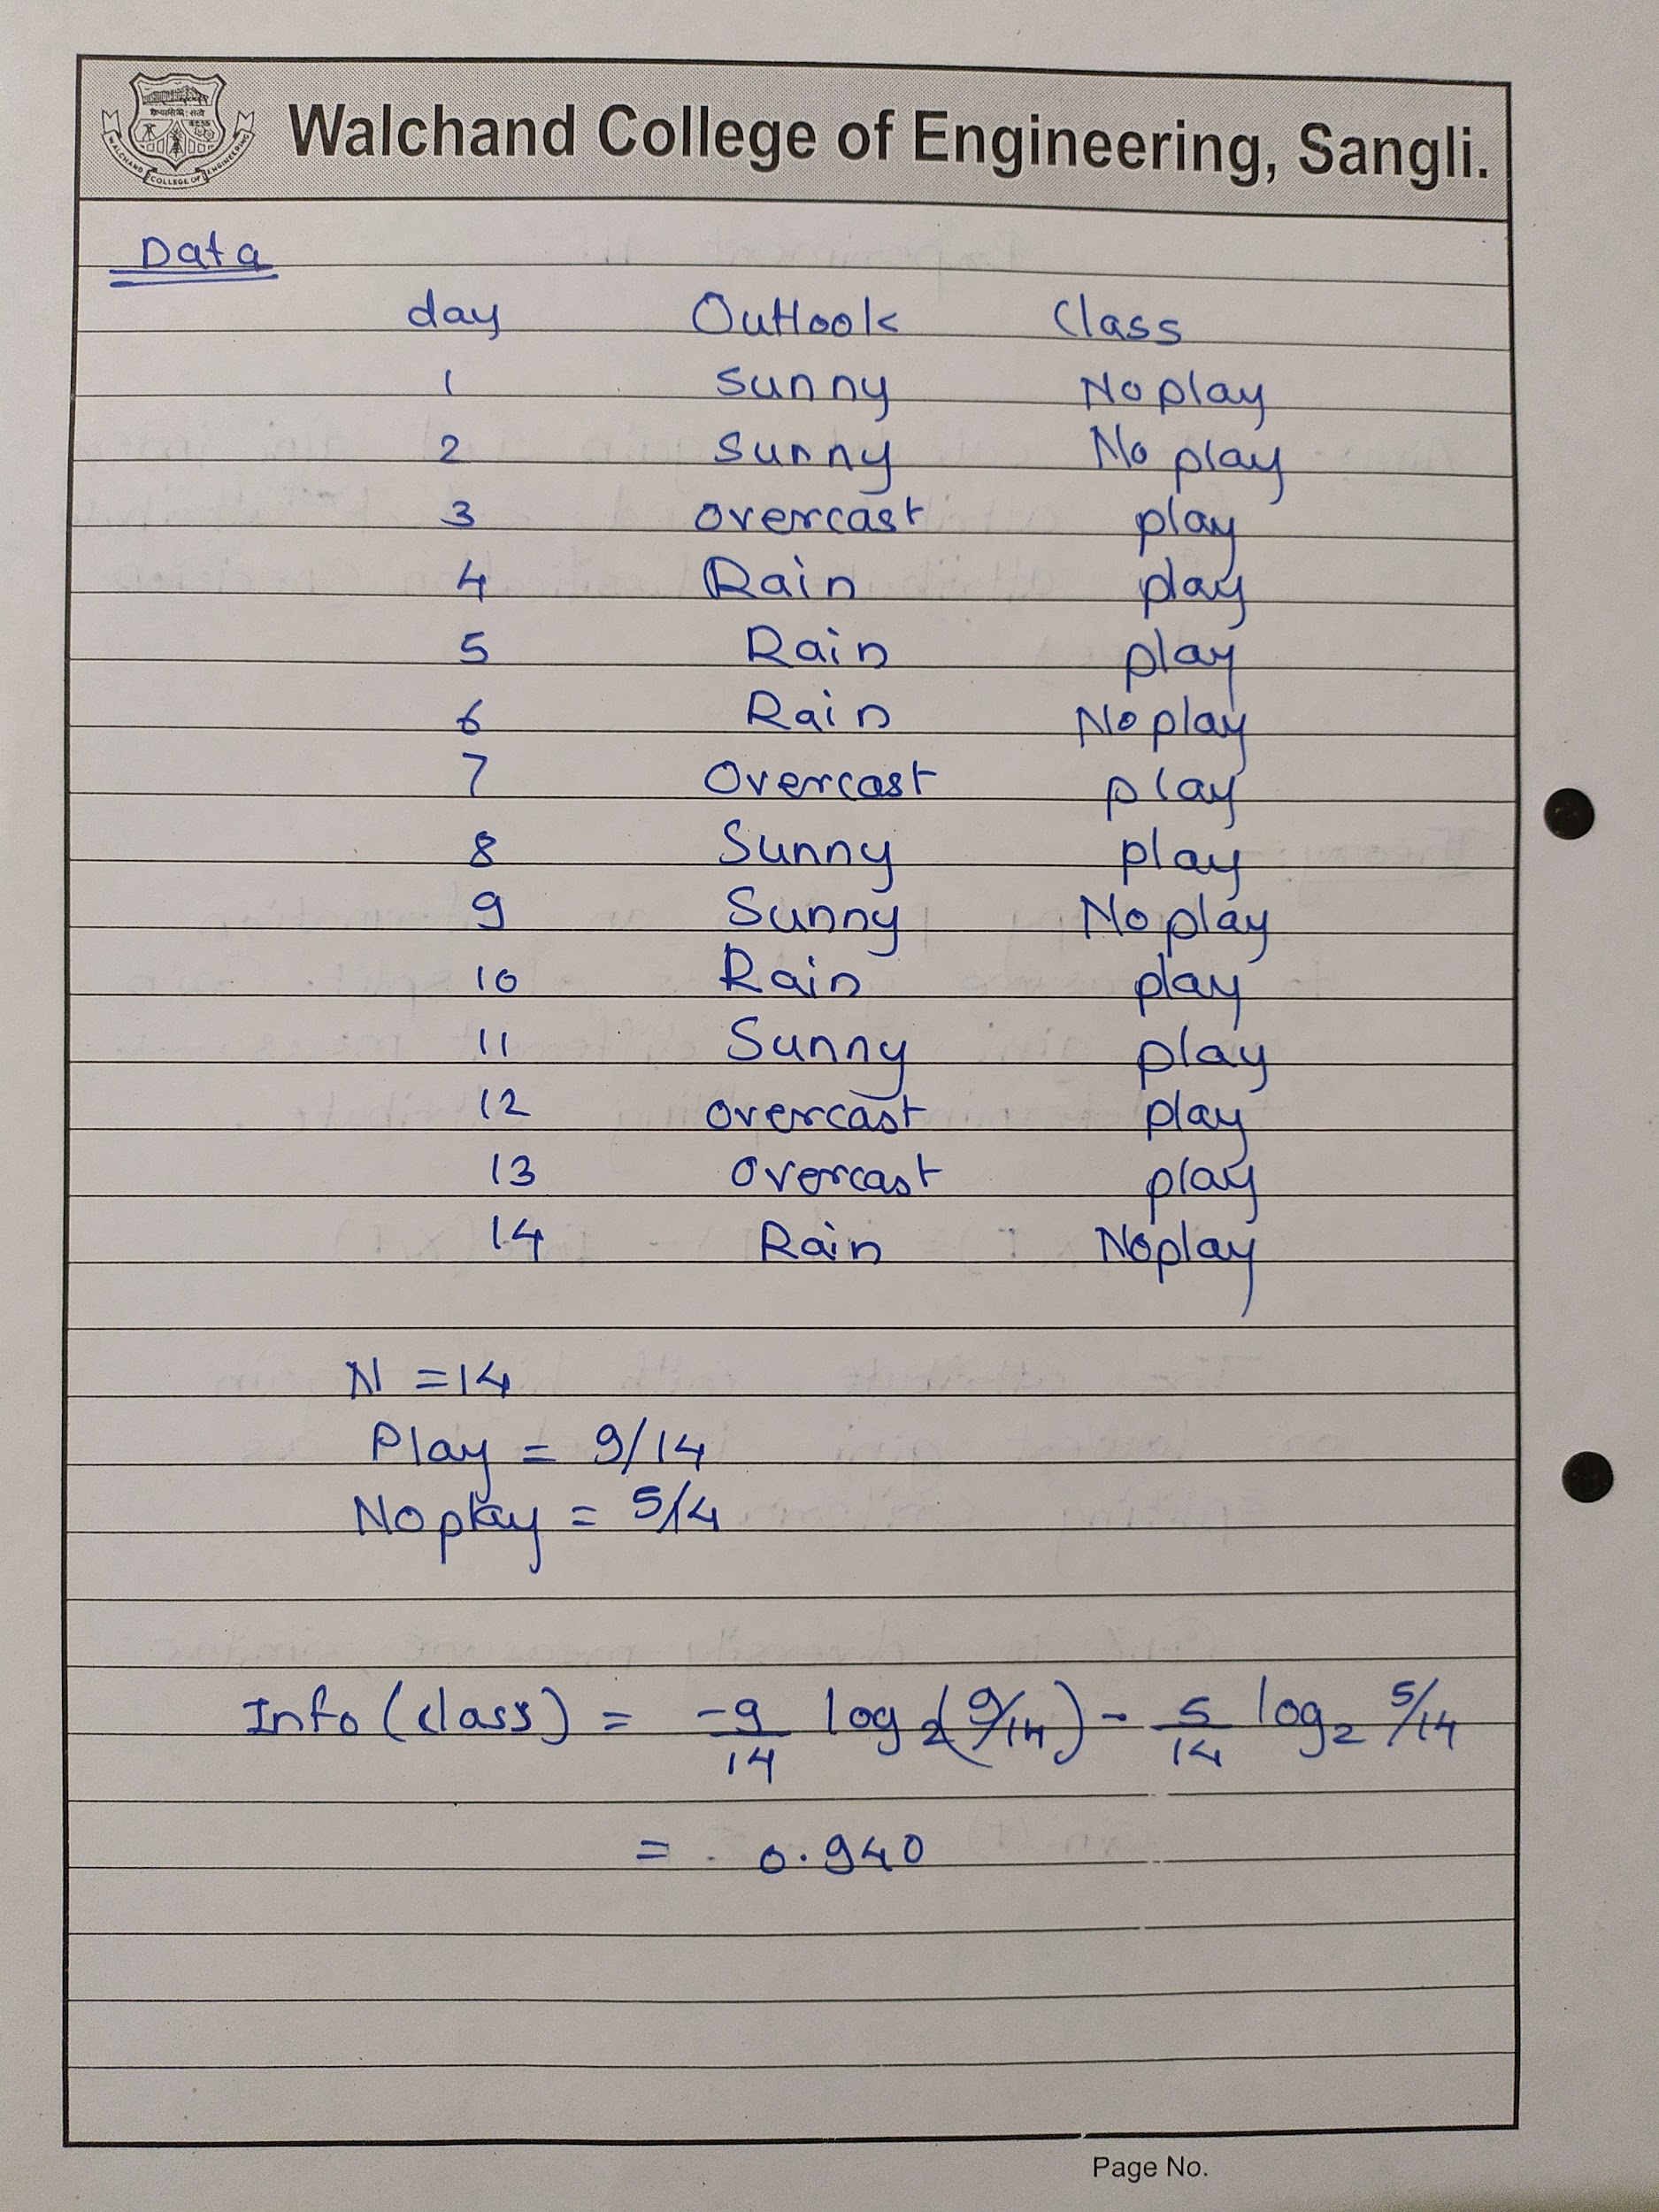 Walchand College of Engineering, Sangli.
WALCHAND COLLEGE OF ENGINEERING
Data
day Outlook Class
1 Sunny No play
2 Sunny No play
3 overcast play
4 Rain play
5 Rain play
6 Rain No play
7 Overcast play
8 Sunny play
9 Sunny No play
10 Rain play
11 Sunny play
12 overcast play
13 overcast play
14 Rain Noplay
N = 14
Play = 9/14
No play = 5/14
Info (class) = -9/14 log2(9/14) - 5/14 log2 5/14
= 0.940
Page No.